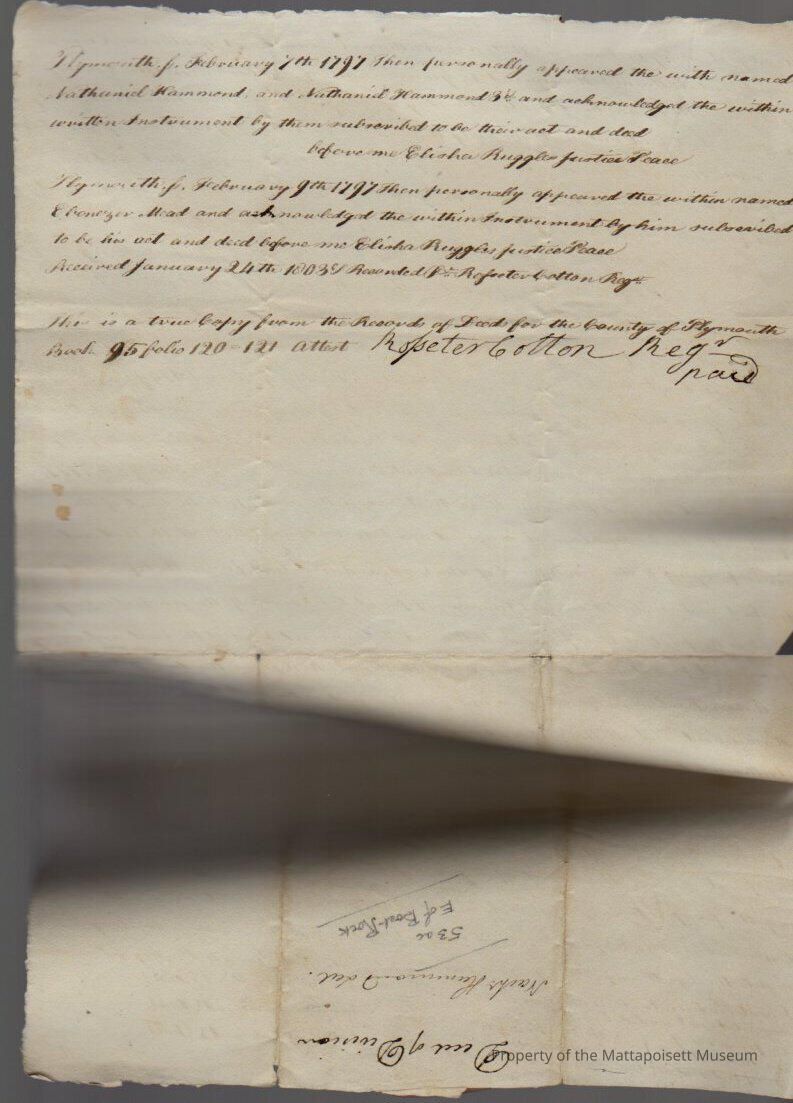 Plymouth ſs. February 7th 1797 Then personally appeared the with named
Nathaniel Hammond, and Nathaniel Hammond 3d and acknowledged the within
written Instrument by them subscribed to be their act and deed
before me Elisha Ruggles Justice Peace
Plymouth ſs. February 9th 1797 Then personally appeared the within named
Ebenezer Mead and acknowledgd the within Instrument by him subscribed
to be his act and deed before me Elisha Ruggles Justice Peace
Received January 24th 1803 & Recorded Pr. Roſseter Cotton Regr.
This is a true Copy from the Records of Deeds for the County of Plymouth
Book 95 folio 120-121 Attest Roſseter Cotton Regr
paid
Deed of Division
Hammond decd.
53 ac
E of Boat-Rock
Property of the Mattapoisett Museum